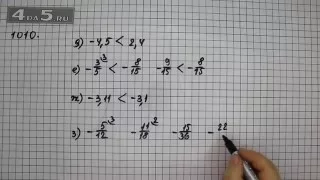 4DA5.RU
1010.
д) -4,5 < 2,4
е) -3/5 \3 < -8/15   -9/15 < -8/15
ж) -3,11 < -3,1
з) -5/12 \3   -11/18 \2   -15/36   -22